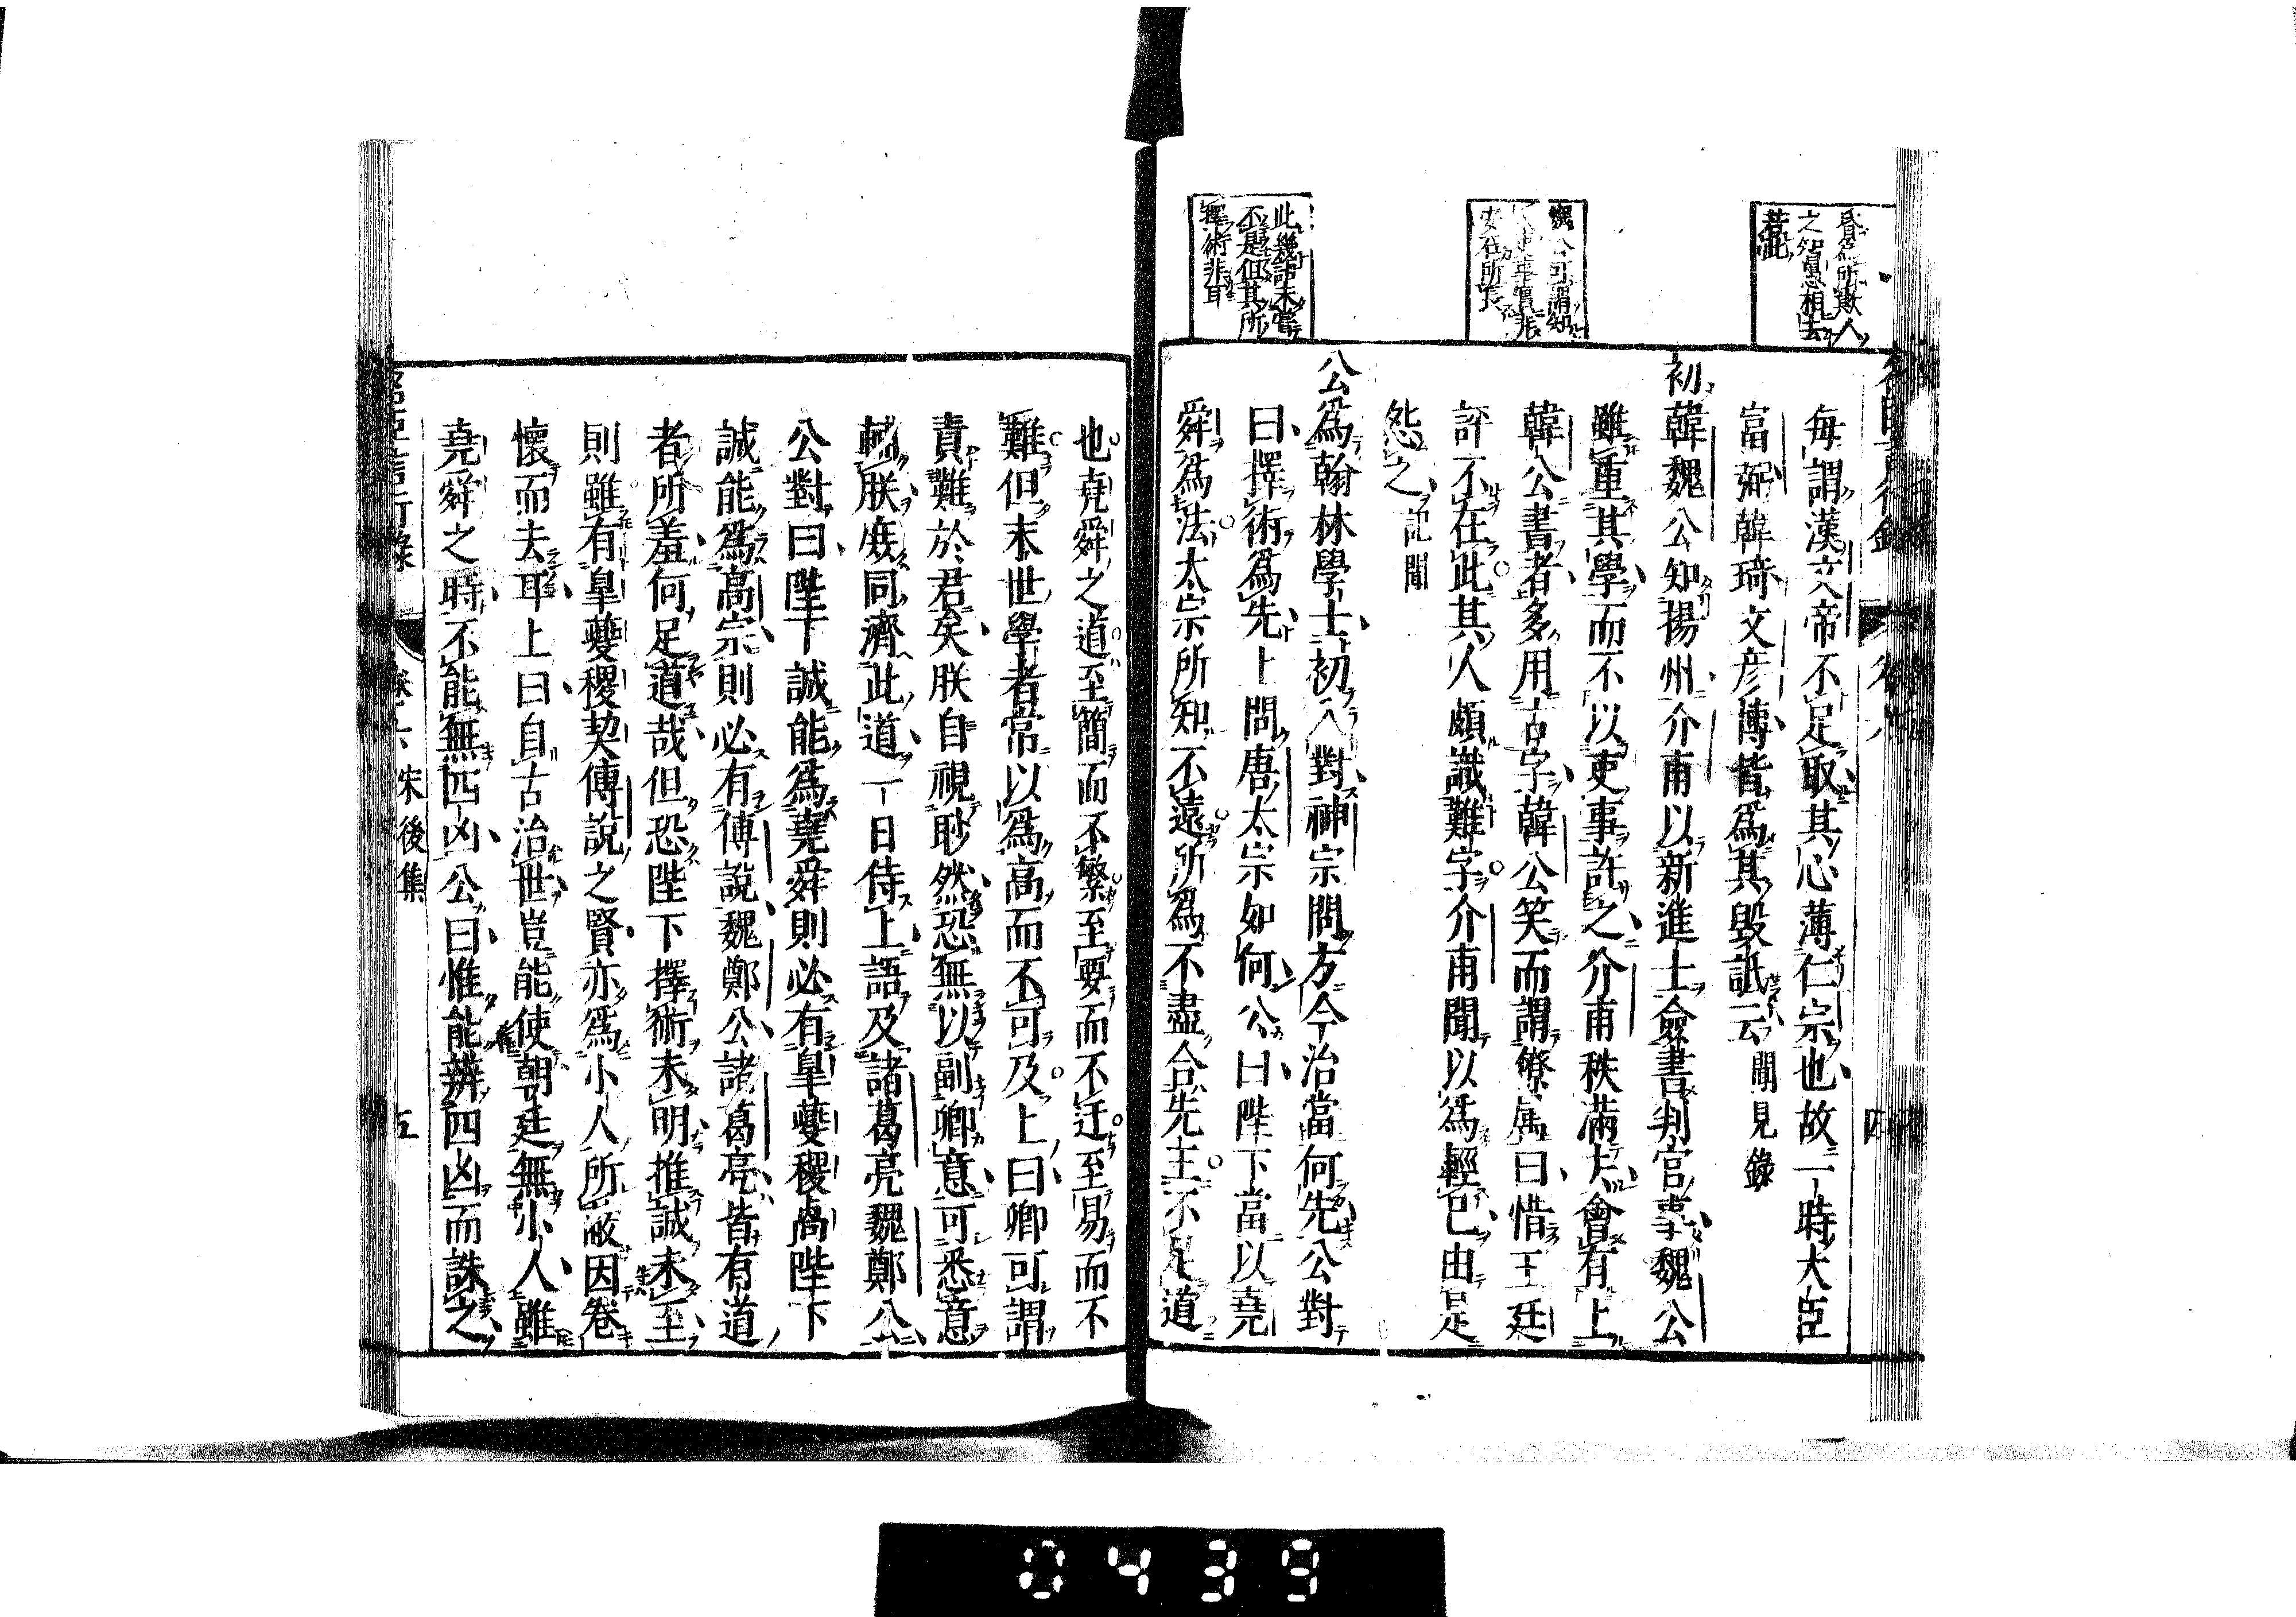 之怨實相去
若此
此幾語未嘗
不是但其所
擇術非耳
每謂漢文帝不足取其心薄仁宗也故一時大臣
富弼韓琦文彦博皆為其毀詆云聞見錄
初韓魏公知揚州介甫以新進士僉書判官事魏公
雖重其學而不以吏事許之介甫秩滿去會有上
韓公書者多用古字韓公笑而謂僚属曰惜王廷
評不在此其人頗識難字介甫聞以為輕已由是
怨之記聞
公為翰林學士初入對神宗問方今治當何先公對
曰擇術為先上問唐太宗如何公曰陛下當以堯
舜為法太宗所知不遠所為不盡合先王不足道
也堯舜之道至簡而不繁至要而不迂至易而不
難但末世學者常以為高而不可及上曰卿可謂
責難於君矣朕自視眇然恐無以副卿意可悉意
輔朕庶同濟此道一日侍上語及諸葛亮魏鄭公
公對曰陛下誠能為堯舜則必有皐夔稷卨陛下
誠能為高宗則必有傅說魏鄭公諸葛亮皆有道
者所羞何足道哉但恐陛下擇術未明推誠未至
則雖有皐夔稷契傅說之賢亦為小人所蔽因卷
懷而去耳上曰自古治世豈能使朝廷無小人雖
堯舜之時不能無四凶公曰惟能辨四凶而誅之
宋後集
五
0439